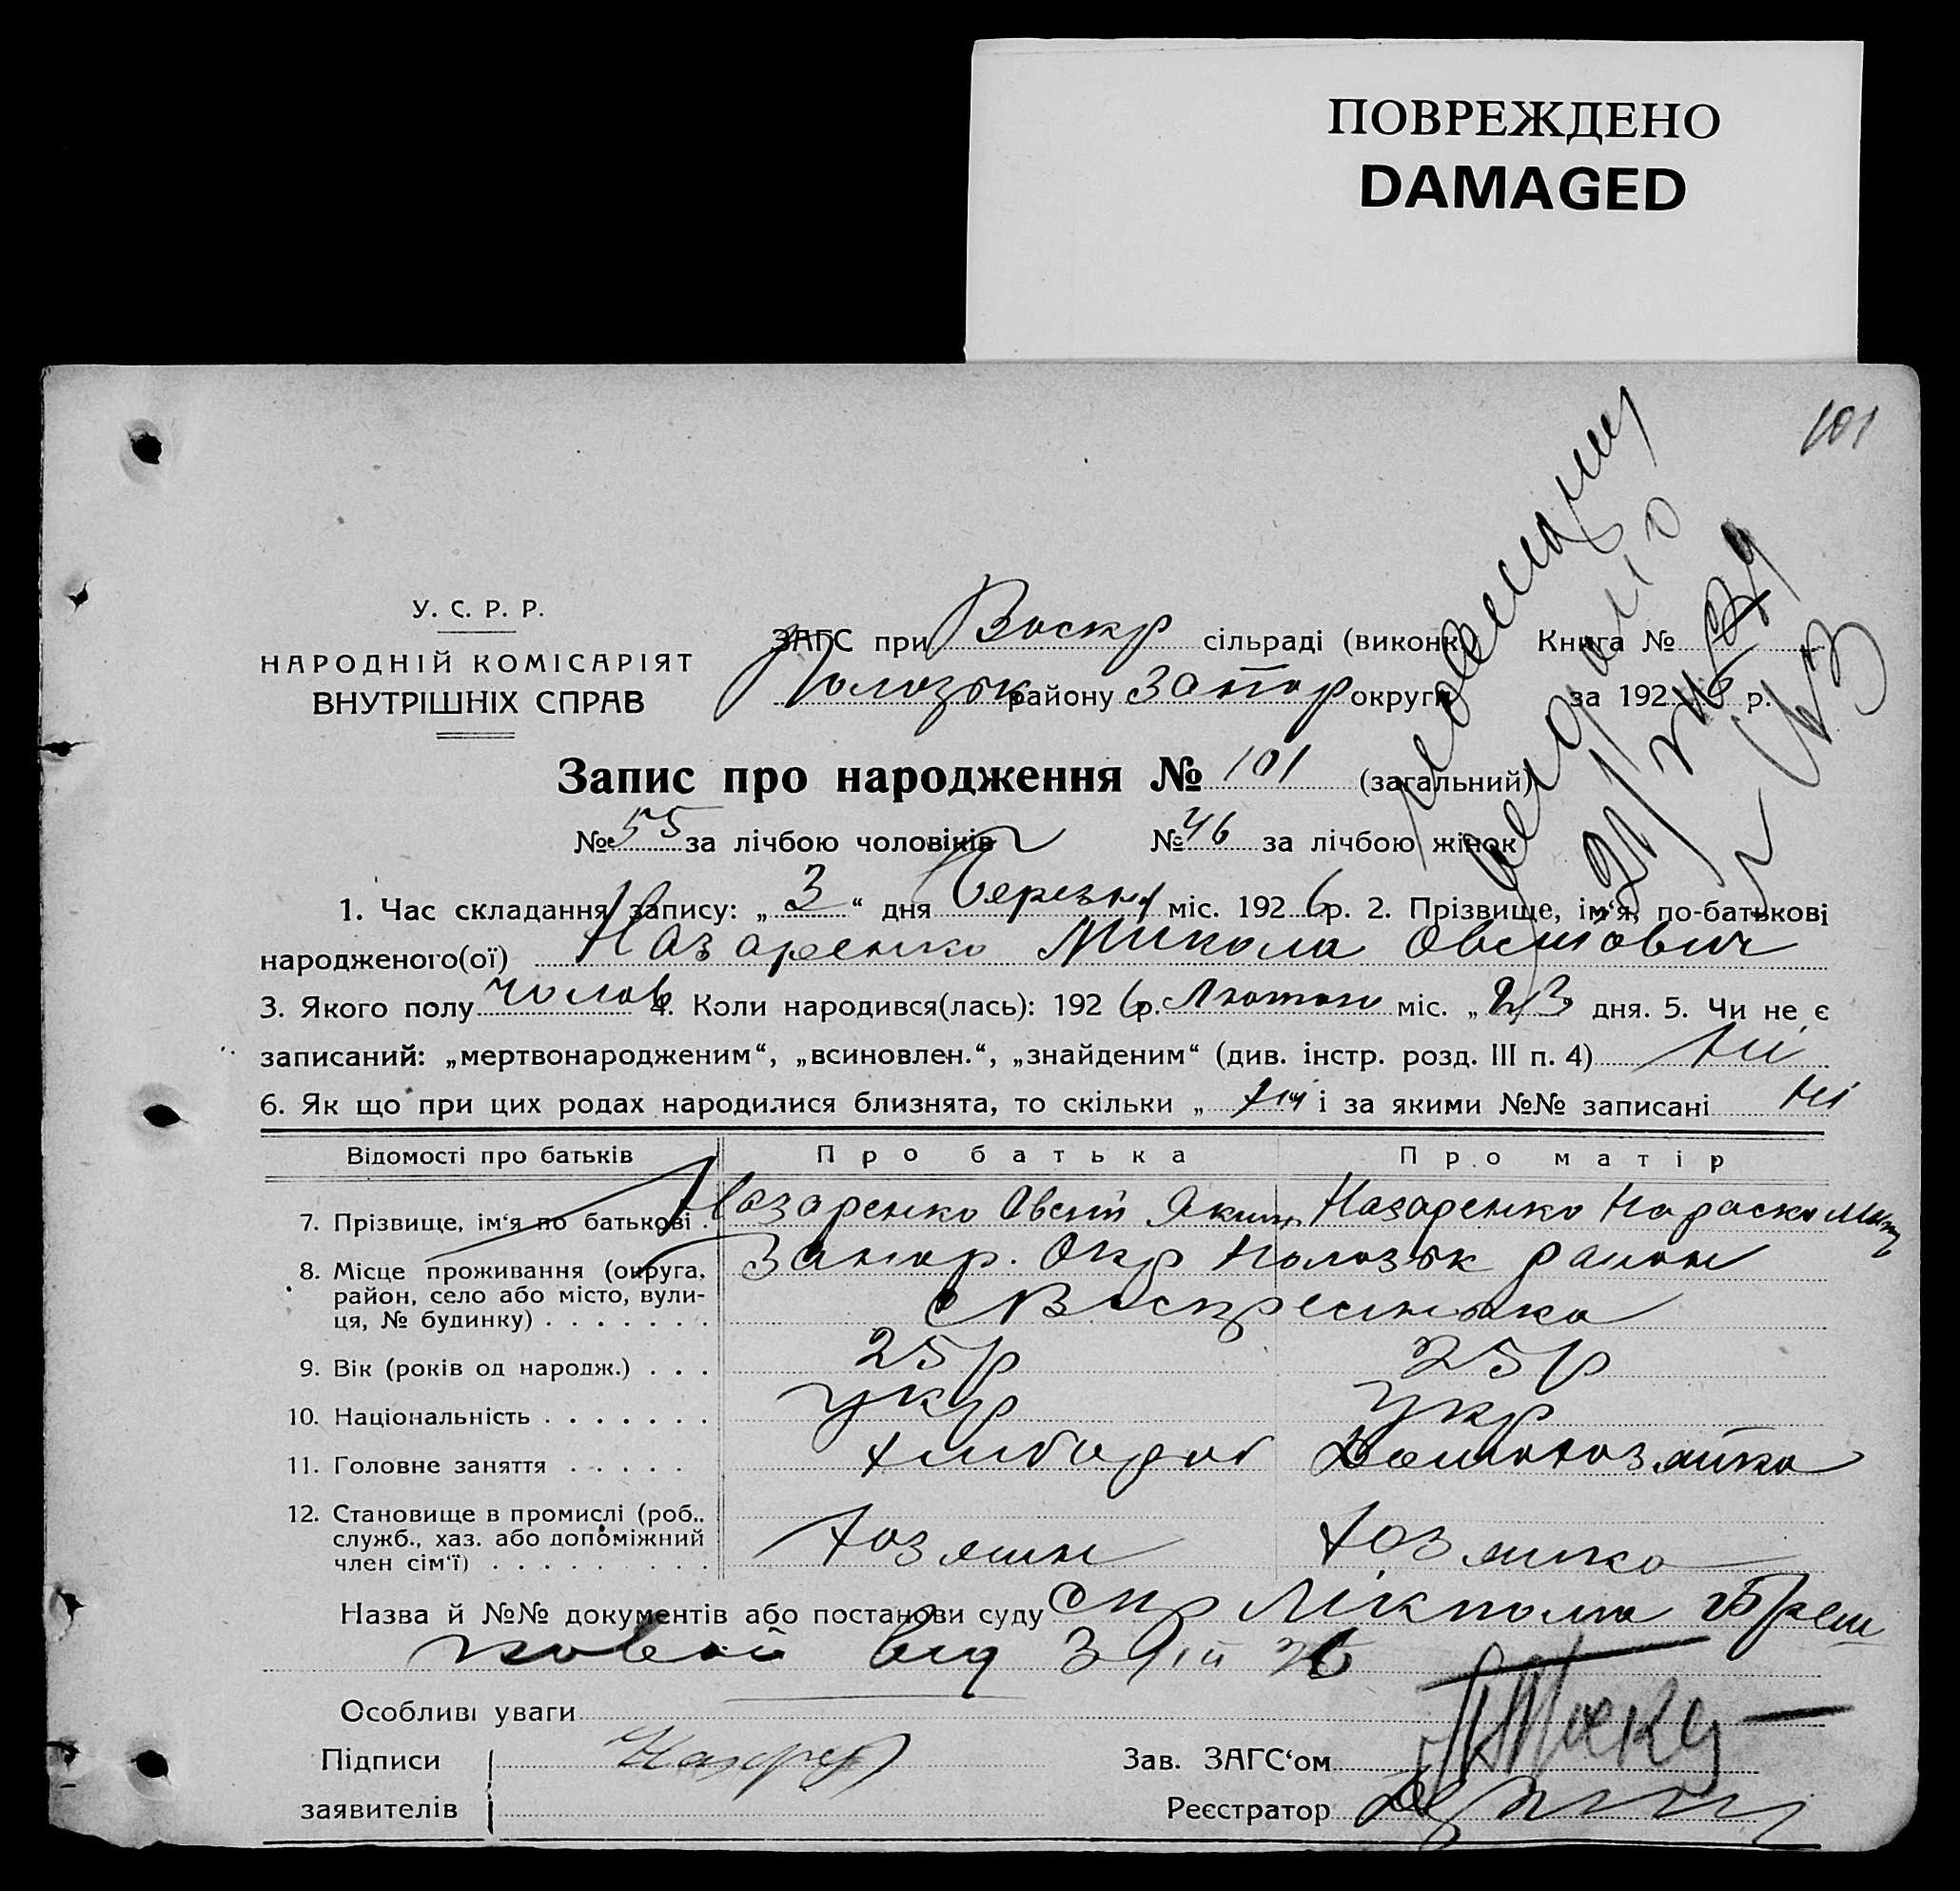 ПОВРЕЖДЕНО
DAMAGED
101
У. С. Р. Р.
НАРОДНІЙ КОМІСАРІЯТ
ВНУТРІШНІХ СПРАВ
ЗАГС при Воскр сільраді (виконк.) Книга №
Пологзьк району Запор округи за 1926 р.
Запис про народження № 101 (загальний)
№ 55 за лічбою чоловіків № 46 за лічбою жінок
1. Час складання запису: „ 3 “ дня Березня міс. 1926 р. 2. Прізвище, ім‘я, по-батькові
народженого(ої) Назаренко Микола Овсійович
3. Якого полу чолов 4. Коли народився(лась): 1926 р. Лютого міс. „ дня. 5. Чи не є
записаний: „мертвонародженим“, „всиновлен.“, „знайденим“ (див. інстр. розд. III п. 4) Ні
6. Як що при цих родах народилися близнята, то скільки „ і за якими №№ записані Ні
Відомості про батьків Про батька Про матір
7. Прізвище, ім‘я по батькові . Назаренко Овсій Яким Назаренко Параска
8. Місце проживання (округа, район, село або місто, вулиця, № будинку) . . . . . . . Запор. Окр Пологзьк район
с Воскресенка
9. Вік (років од народж.) . . . 25 р 25 р
10. Національність . . . . . . . укр укр
11. Головне заняття . . . . . хлібороб Домохозяйка
12. Становище в промислі (роб., служб., хаз. або допоміжний член сім‘ї) . . . . . . . . . хозяин хозяйка
Назва й №№ документів або постанови суду
від 3
Особливі уваги
Підписи Зав. ЗАГС‘ом
заявителів Реєстратор